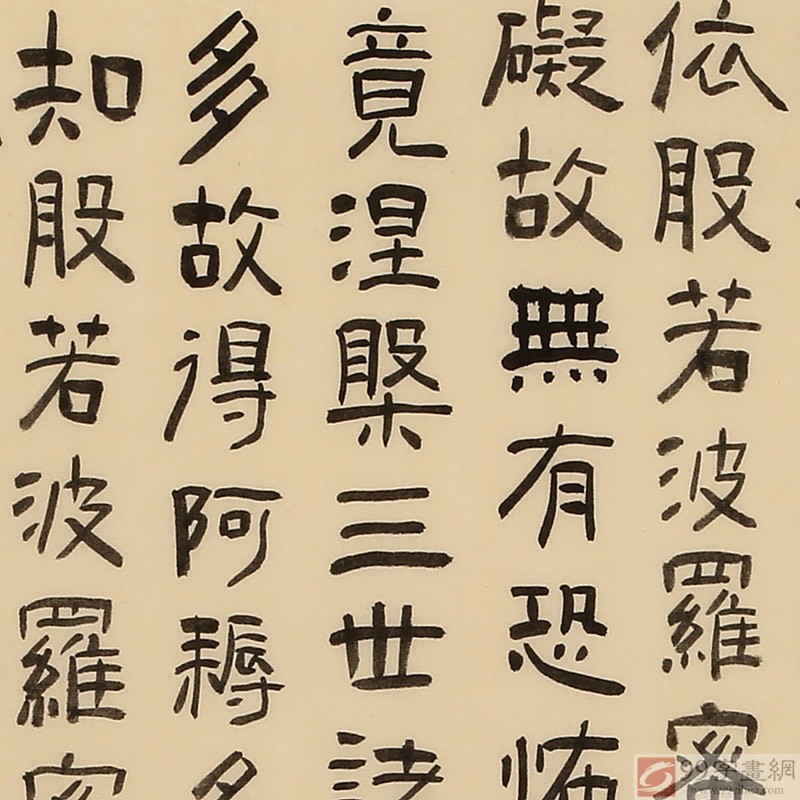 依般若波羅密
礙故無有恐怖
竟涅槃三世諸
多故得阿耨多
知般若波羅密
99字畫網